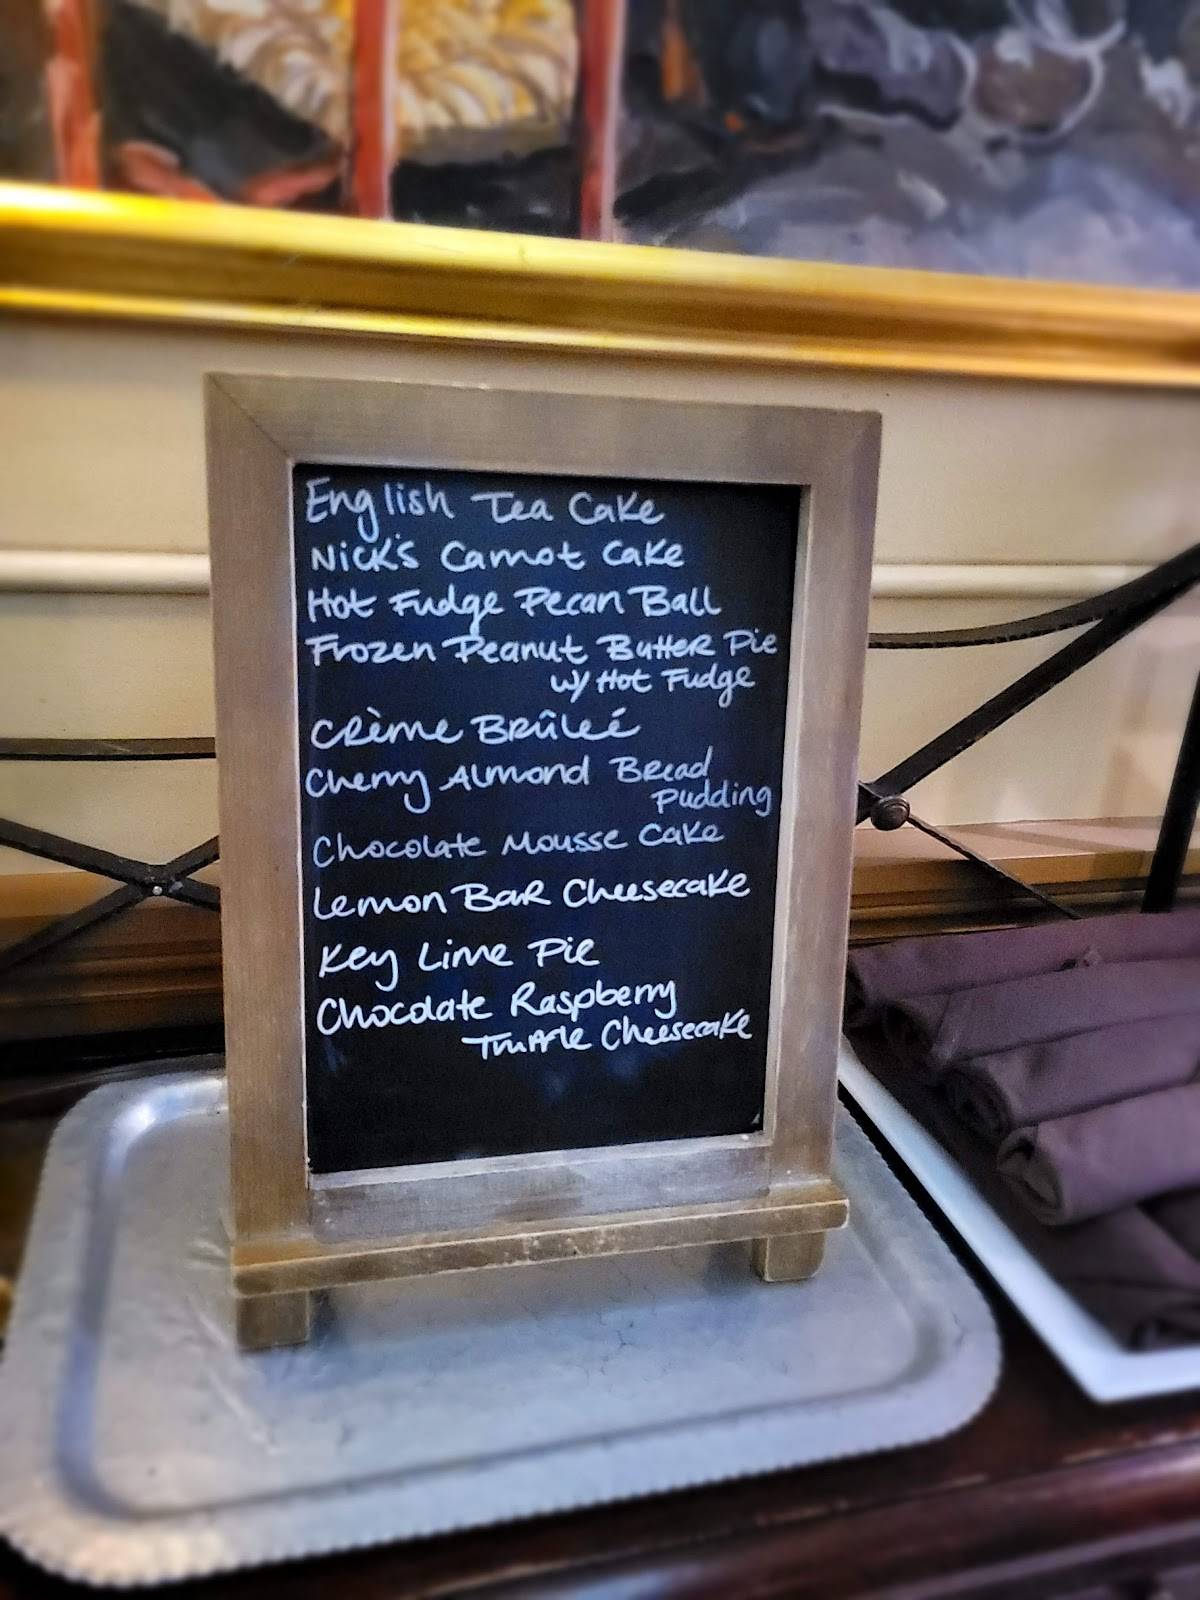 English Tea Cake
Nick's Carrot Cake
Hot Fudge Pecan Ball
Frozen Peanut Butter Pie
w/ Hot Fudge
Crème Brûleé
Cherry Almond Bread
Pudding
Chocolate Mousse Cake
Lemon Bar Cheesecake
Key Lime Pie
Chocolate Raspberry
Truffle Cheesecake